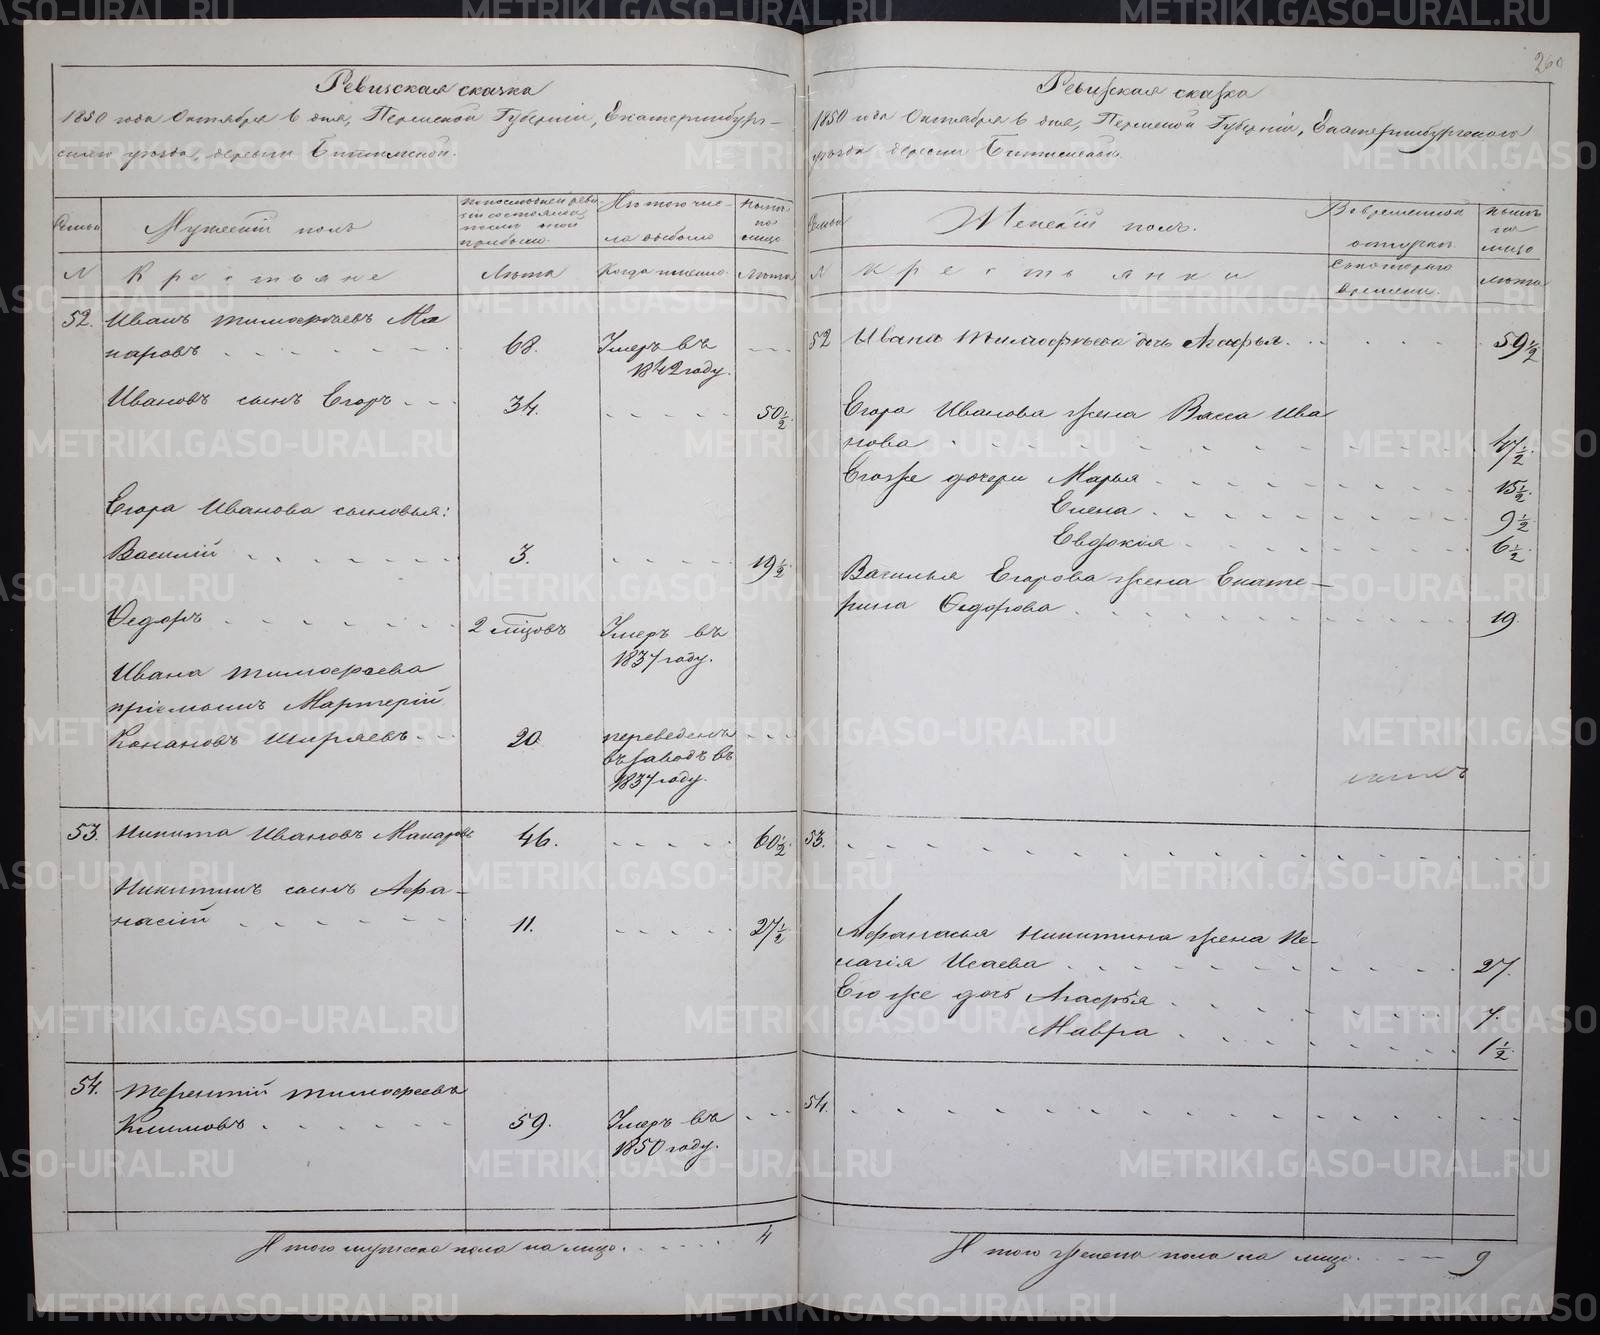 260
Ревизская сказка
1850 года Октября 6 дня, Пермской Губернии, Екатеринбург-
скаго уезда, деревни Битимской.
Семьи
Мужескій полъ
По последней реви-
зіи состояло и
после той
прибыло.
Изъ того чис-
ла выбыло
Ныне
на
лицо
N
Крестьяне
Лета
Когда именно.
Лета
52. Иванъ Тимофеевъ Ма
каровъ 68. Умеръ въ
1842 году.
Ивановъ сынъ Егоръ 34. 50 1/2
Егора Иванова сыновья:
Василій 3. 19 1/2
Федоръ 2 мцовъ Умеръ въ
1837 году.
Ивана Тимофеева
пріемышъ Мартерій
Конановъ Ширяевъ 20 переведенъ
въ заводъ въ
1837 году.
53. Никита Ивановъ Макаровъ 46. 60 1/2
Никитинъ сынъ Афа-
насій 11. 27 1/2
54. Терентій Тимофеевъ
Климовъ 59. Умеръ въ
1850 году.
Итого мужеска пола на лицо 4
Ревизская сказка
1850 года Октября 6 дня, Пермской Губерніи, Екатеринбургскаго
уезда деревни Битимской.
Семьи
Женскій полъ.
Во временной
отлучке
Ныне
на
лицо
N
Крестьянки
Съ котораго
времени.
Лета
52 Ивана Тимофеева дочь Агафья 59 1/2
Егора Иванова жена Васса Ива
нова 47 1/2
Егоже дочери Марья 15 1/2
Елена 9 1/2
Евдокія 6 1/2
Василья Егорова жена Екате-
рина Федорова 19
53.
Афанасья Никитина жена Пе-
лагія Исаева 27.
Егоже дочь Агафья 7.
Мавра 1 1/2
54.
Итого женска пола на лицо 9
METRIKI.GASO-URAL.RU